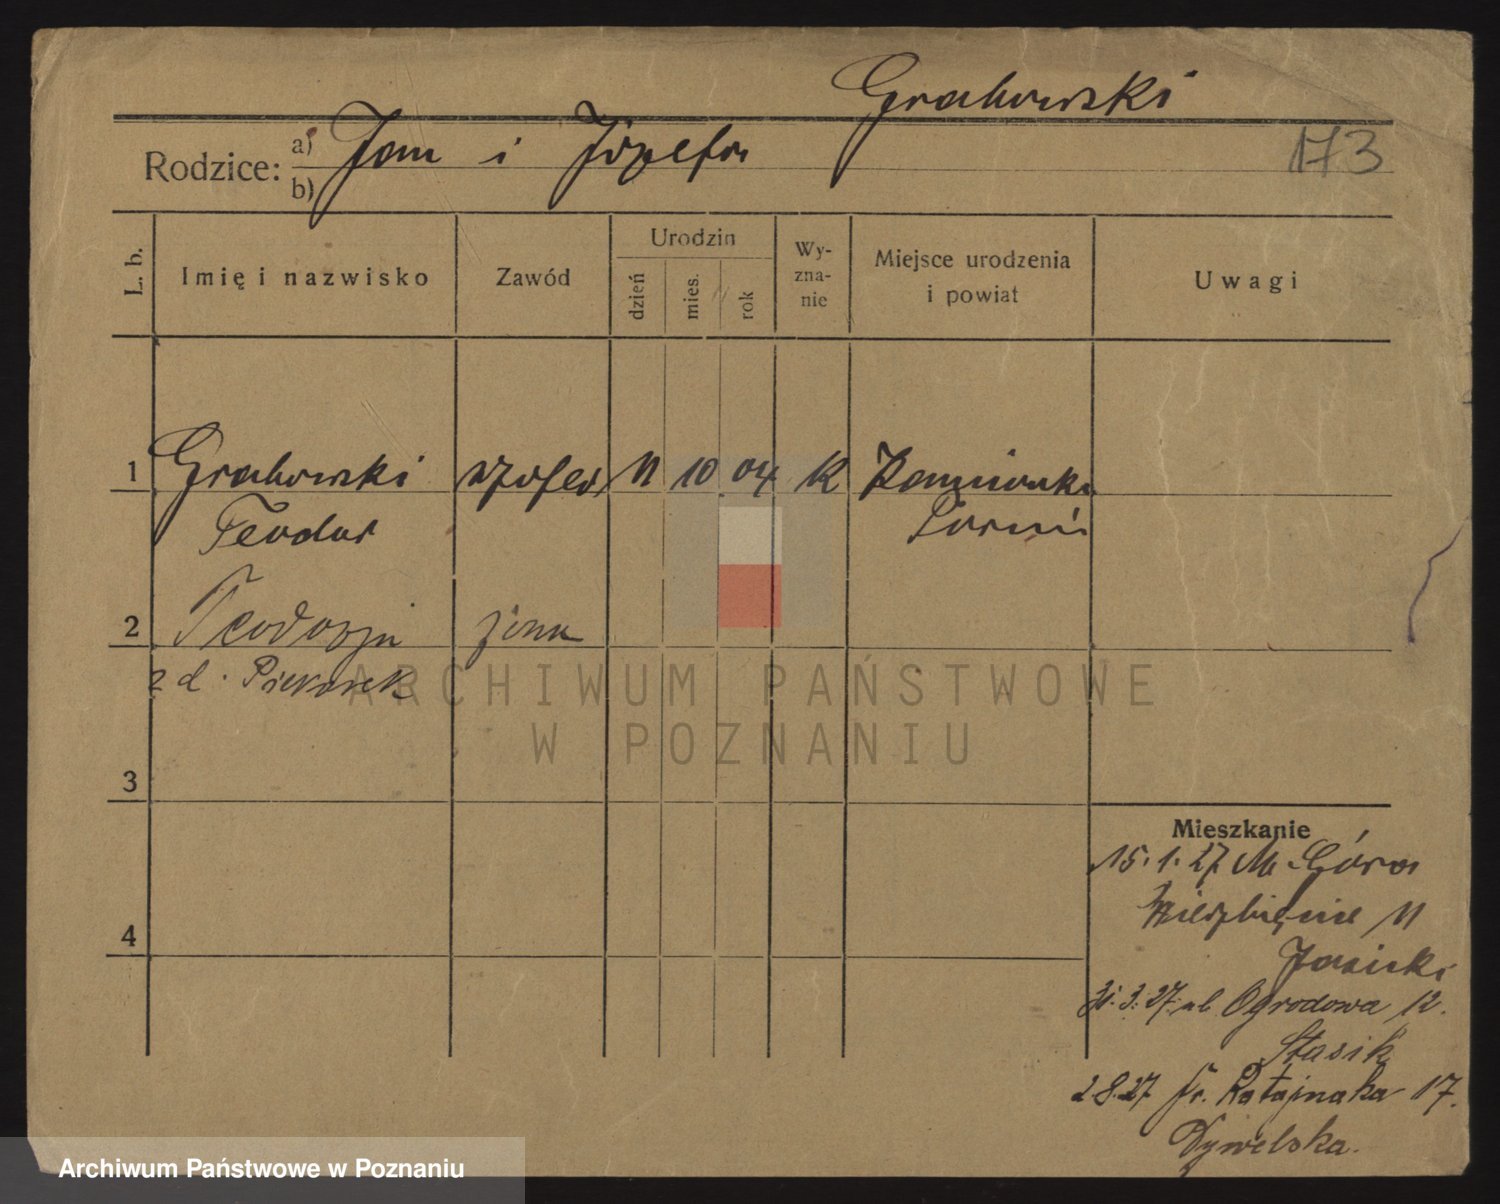 Grabowski
Rodzice: a) Jan i Józefa
b)
173
L. b.
Imię i nazwisko
Zawód
Urodzin
dzień
mies.
rok
Wy-
zna-
nie
Miejsce urodzenia
i powiat
Uwagi
1 Grabowski szofer 11 10 04 k
Teodor
2 Teodozja żona
z d. Piekarek
ARCHIWUM PAŃSTWOWE
W POZNANIU
3
4
Mieszkanie
15.1.27 Góra
Wierzbięcice 11
Jasicki
31.3.27 Ogrodowa 12.
Stasik
2 8.27 Fr. Ratajczaka 17.
Archiwum Państwowe w Poznaniu